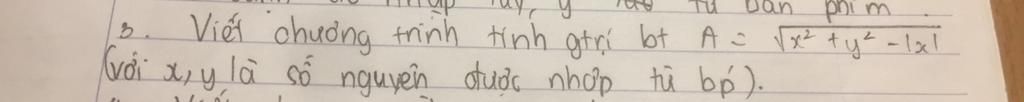 nhập x, y từ bàn phím.
3. Viết chương trình tính gtrị bt A = √x² + y² - |x|
(với x, y là số nguyên được nhập từ bp').